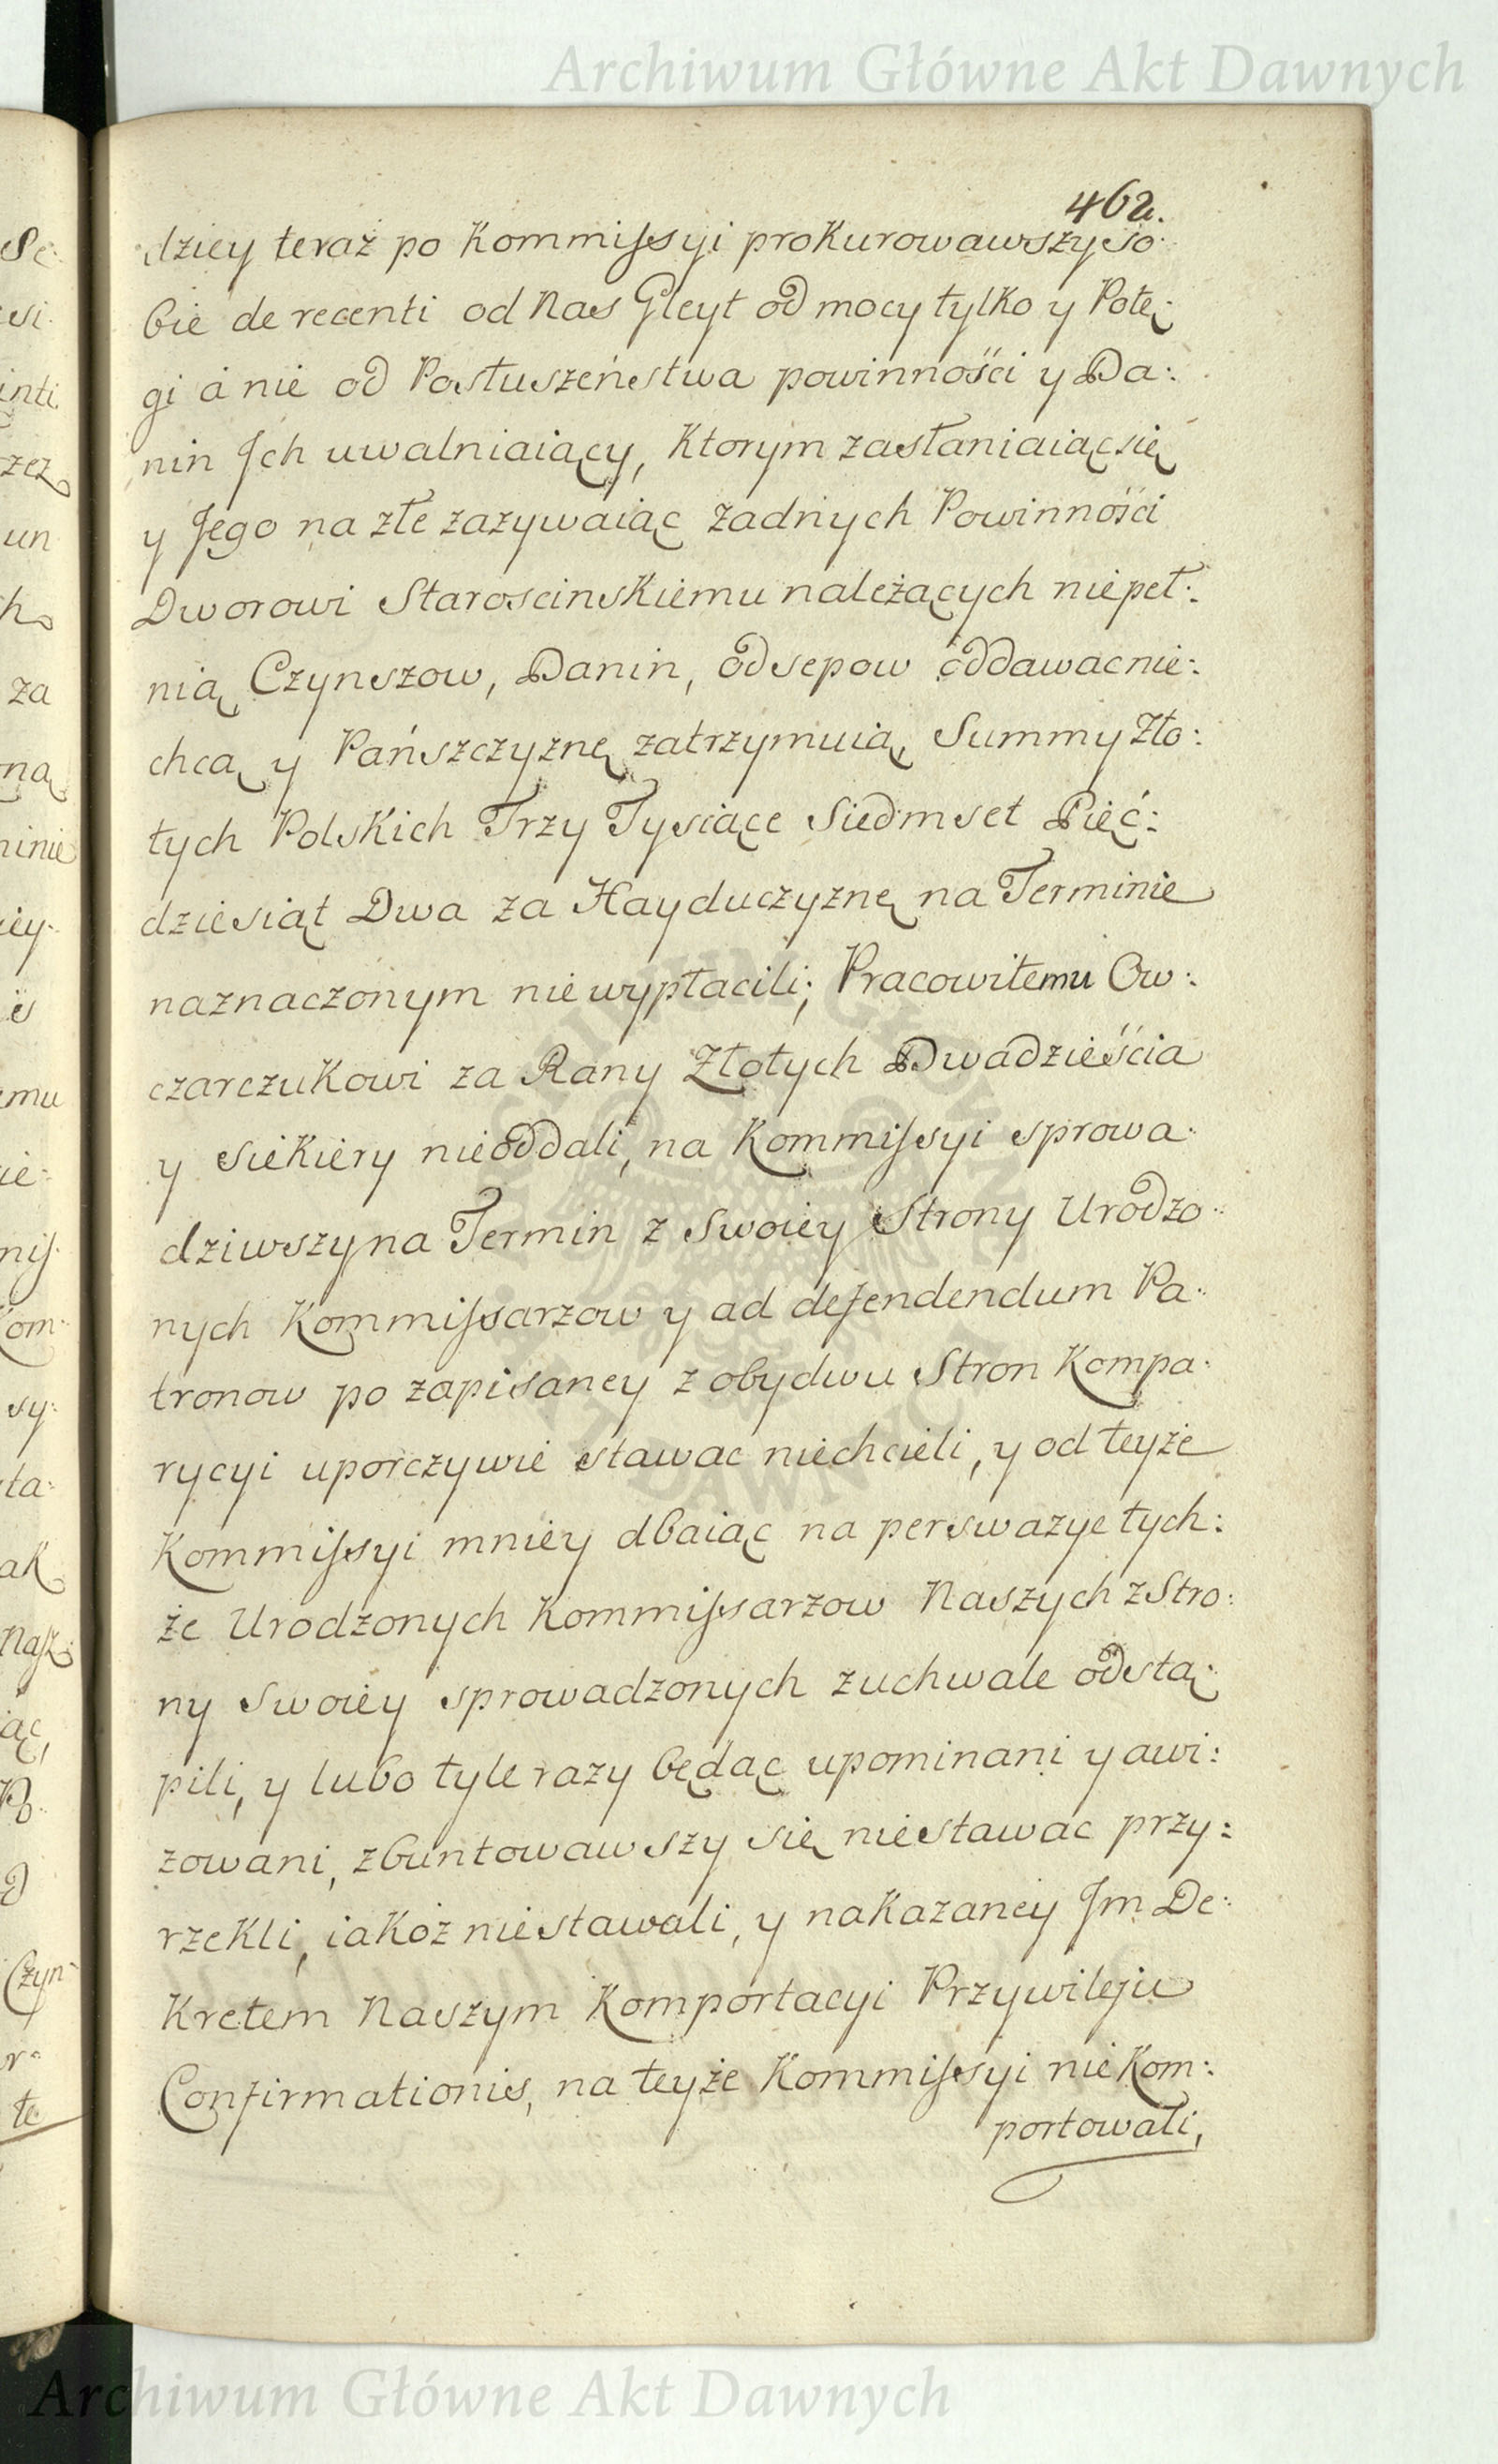 Archiwum Główne Akt Dawnych
462.
dziey teraz po Kommissyi proKurowawszy so:
bie de recenti od Nas Gleyt od mocy tylKo y Potę:
gi á nie od Posłuszeństwa powinności y Da:
nin Jch uwalniaiący, Ktorym zasłaniaiąc się
y Jego na złe zazywaiąc zadnych Powinności
Dworowi StaroscinsKiemu należących niepeł:
nią, Czynszow, Danin, odsepow oddawac nie:
chcą y Pańszczyznę zatrzymuią, Summy Zło:
tych PolsKich Trzy Tysiące Siedmset Pięć:
dziesiąt Dwa za Hayduczyznę na Terminie
naznaczonym nie wypłacili; Pracowitemu Ow:
czarczuKowi za Rany Złotych Dwadzieścia
y sieKiery nieoddali, na Kommissyi sprowa:
dziwszy na Termin z Swoiey Strony Urodzo:
nych Kommissarzow y ad defendendum Pa:
tronow po zapisaney z obydwu Stron Kompa:
rycyi uporczywie stawac niechcieli, y od teyże
Kommissyi mniey dbaiąc na perswazye tych:
że Urodzonych Kommissarzow Naszych z Stro:
ny Swoiey sprowadzonych zuchwale odstą:
pili, y lubo tyle razy będąc upominani y awi:
zowani, zbuntowawszy się niestawac przy:
rzeKli, iaKoż niestawali, y naKazaney Jm De:
Kretem Naszym Komportacyi Przywileju
Confirmationis, na teyże Kommissyi nie Kom:
portowali,
Archiwum Główne Akt Dawnych